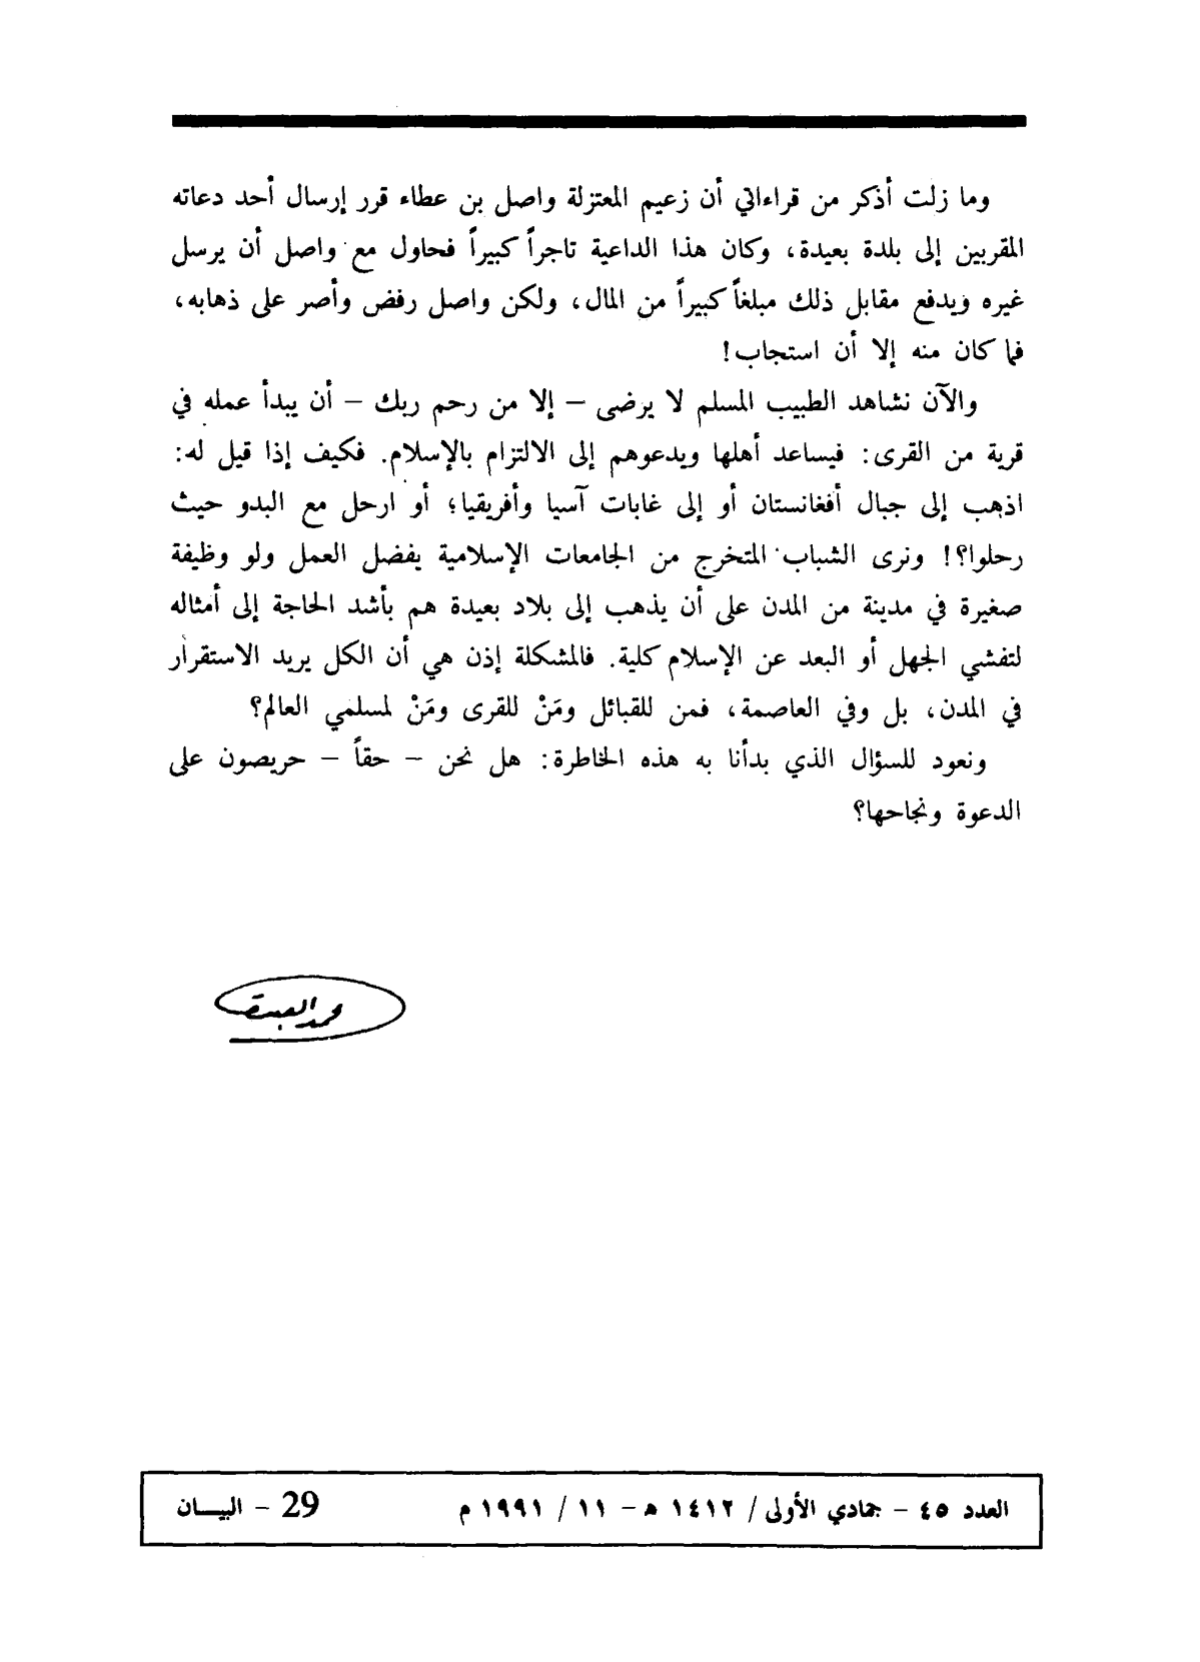 وما زلت أذكر من قراءاتي أن زعيم المعتزلة واصل بن عطاء قرر إرسال أحد دعاته
المقربين إلى بلدة بعيدة، وكان هذا الداعية تاجراً كبيراً فحاول مع واصل أن يرسل
غيره ويدفع مقابل ذلك مبلغاً كبيراً من المال، ولكن واصل رفض وأصر على ذهابه،
فما كان منه إلا أن استجاب!
والآن نشاهد الطبيب المسلم لا يرضى – إلا من رحم ربك – أن يبدأ عمله في
قرية من القرى: فيساعد أهلها ويدعوهم إلى الالتزام بالإسلام. فكيف إذا قيل له:
اذهب إلى جبال أفغانستان أو إلى غابات آسيا وأفريقيا؛ أو ارحل مع البدو حيث
رحلوا؟! ونرى الشباب المتخرج من الجامعات الإسلامية يفضل العمل ولو وظيفة
صغيرة في مدينة من المدن على أن يذهب إلى بلاد بعيدة هم بأشد الحاجة إلى أمثاله
لتفشي الجهل أو البعد عن الإسلام كلية. فالمشكلة إذن هي أن الكل يريد الاستقرار
في المدن، بل وفي العاصمة، فمن للقبائل ومَنْ للقرى ومَنْ لمسلمي العالم؟
ونعود للسؤال الذي بدأنا به هذه الخاطرة: هل نحن – حقاً – حريصون على
الدعوة ونجاحها؟
محمد العبدة
العدد ٤٥ – جمادي الأولى/ ١٤١٢ هـ – ١١ / ١٩٩١ م 29 – البيـــان